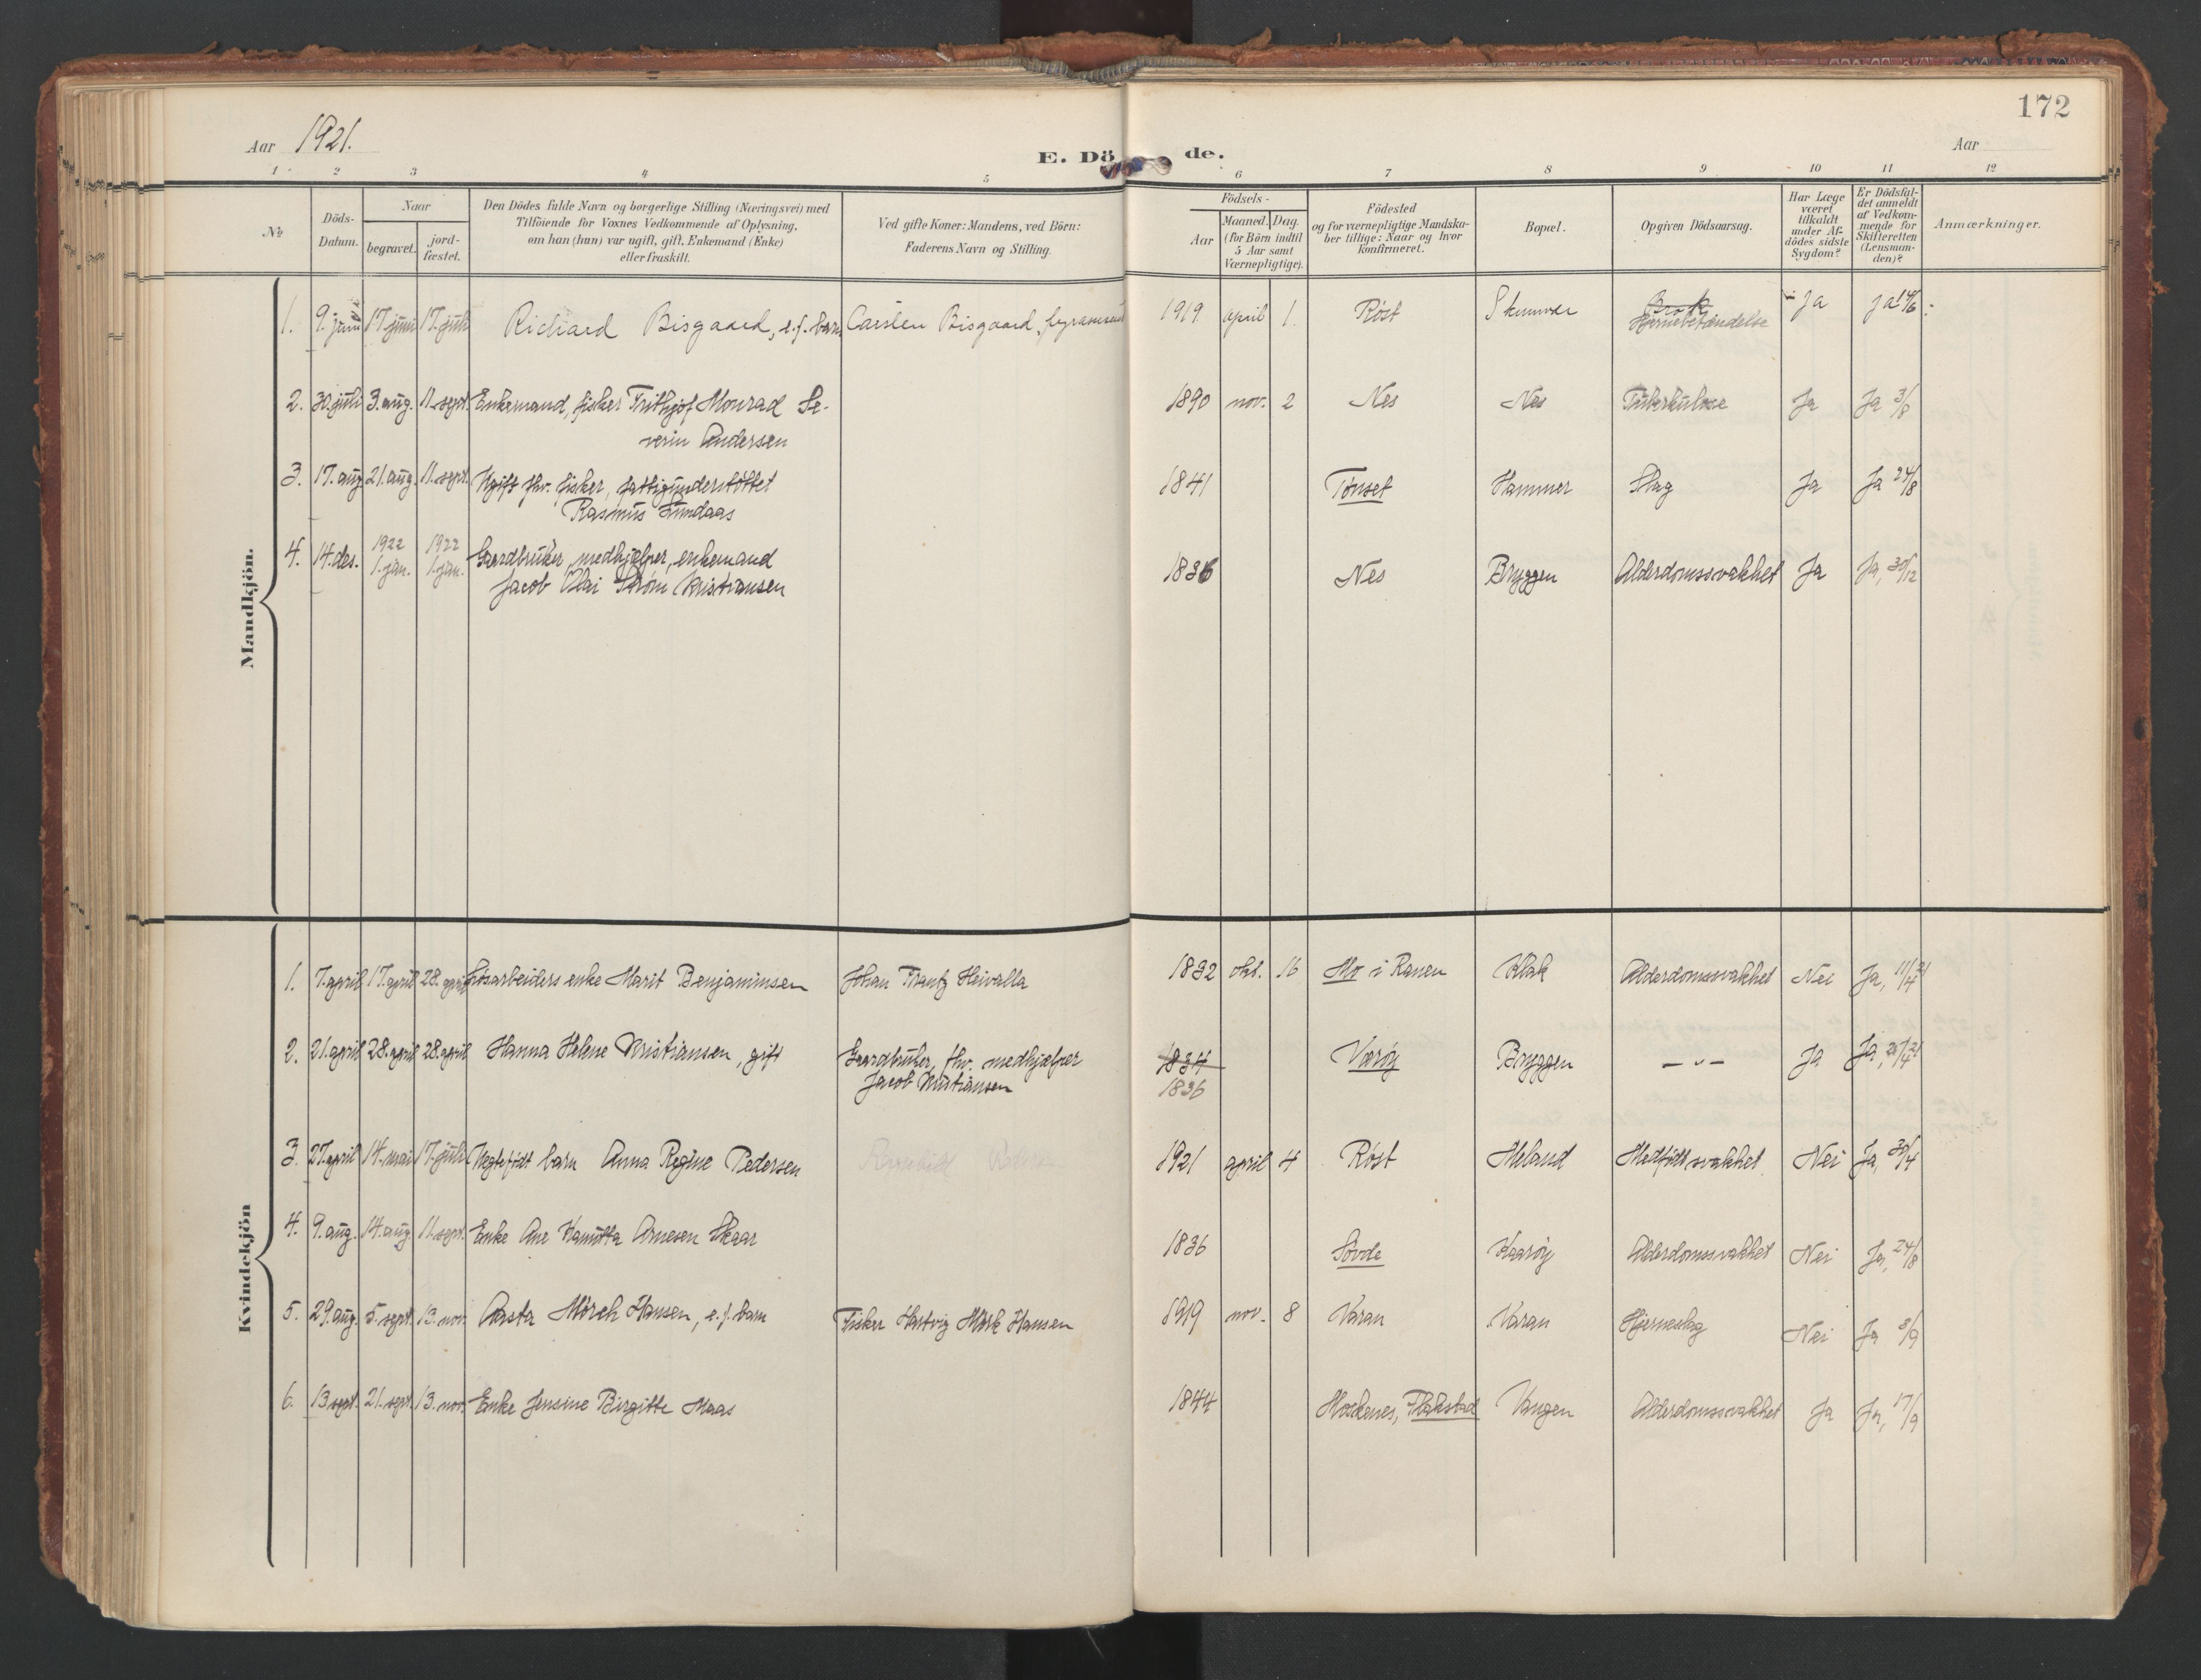 172
Aar 1921.
E. Dö de.
Aar
1 2 3 4 5 6 7 8 9 10 11 12
No
Döds-Datum.
Naar
begravet.
jord-fæstet.
Den Dödes fulde Navn og borgerlige Stilling (Næringsvei) med
Tilföiende for Voxnes Vedkommende af Oplysning,
om han (hun) var ugift, gift, Enkemand (Enke)
eller fraskilt.
Ved gifte Koner: Mandens, ved Börn:
Faderens Navn og Stilling.
Födsels-
Aar
Maaned. Dag.
(for Börn indtil
5 Aar samt
Værnepligtige).
Födested
og for værnepligtige Mandska-
ber tillige: Naar og hvor
konfirmeret.
Bopæl.
Opgiven Dödsaarsag.
Har Læge
været
tilkaldt
under Af-
dödes sidste
Sygdom?
Er Dödsfal-
det anmeldt
af Vedkom-
mende for
Skifteretten
(Lensman-
den)?
Anmærkninger.
Mandkjön.
1. 9. juni 17. juni 17. juli Richard Bisgaard, e.f. barn Carsten Bisgaard, 1919 april 1. Røst Skomvær Hjernebetændelse Ja Ja 14/6
2. 30. juli 3. aug. 11. sept. Enkemand, fisker Frithjof Monrad Se-
verin Andersen 1890 nov. 2 Nes Nes Tuberkulose Ja Ja 3/8
3. 17. aug. 21. aug. 11. sept. Ugift fhv. fisker, fattigunderstøttet
Rasmus Lundaas 1841 Tønset Hammer Slag Ja Ja 24/8
4. 14. des. 1922 1. jan. 1922 1. jan. Gaardbruker, medhjælper, enkemand
Jacob Olai Strøm Kristiansen 1836 Nes Bryggen Alderdomssvakhet Ja Ja, 30/12
Kvindekjön
1. 7. april 17. april 28. april Løsarbeiders enke Marit Benjaminsen Johan Frantz Heivalla 1832 okt. 16 Mo i Ranen Klak Alderdomssvakhet Nei Ja, 11/4 21
2. 21. april 28. april 28. april Hanna Helene Kristiansen, gift Gaardbruker, fhv. medhjælper
Jacob Kristiansen 1834
1836 Værøy Bryggen — " — Ja Ja, 28/4 21
3. 27. april 14. mai 17. juli Uegtefødt barn Anna Regine Pedersen 1921 april 4 Røst Meland Medfødt svakhet Nei Ja, 30/4
4. 9. aug. 14. aug. 11. sept. Enke Ane Kanutta Arnesen Skaar 1836 Søvde Kaarøy Alderdomssvakhet Nei Ja, 24/8
5. 29. aug. 5. sept. 13. nov. Aasta Mörch Hansen, e.f. barn Fisker Hartvig Mörk Hansen 1919 nov. 8 Varan Varan Hjerneslag Nei Ja 8/9
6. 13. sept. 21. sept. 13. nov. Enke Jensine Birgitte Maas 1844 Moskenes, Flakstad Vangen Alderdomssvakhet Ja Ja, 17/9